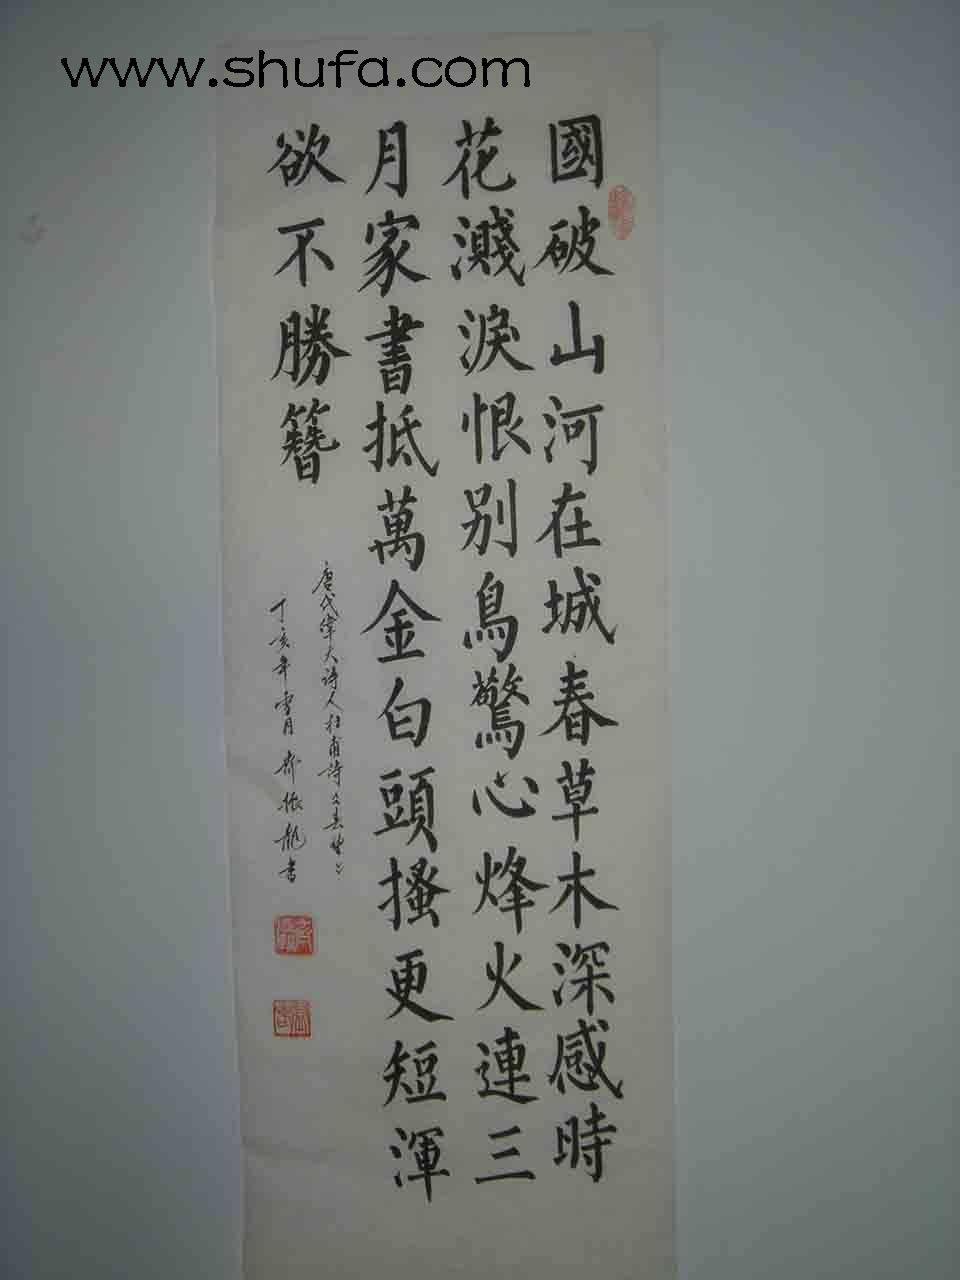 www.shufa.com
國破山河在城春草木深感時
花濺淚恨別鳥驚心烽火連三
月家書抵萬金白頭搔更短渾
欲不勝簪
唐代偉大詩人杜甫詩
丁亥年雪月